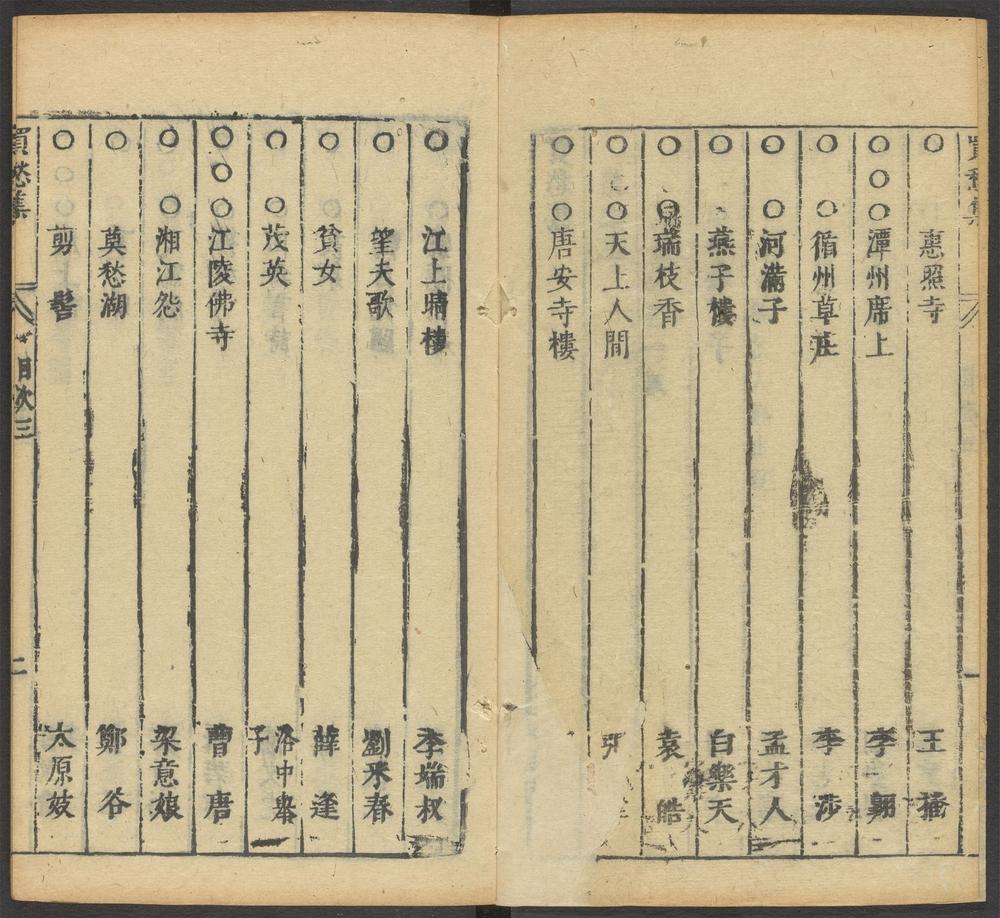 買愁集
○　惠照寺　王播
○○○潭州席上　李翱
○　○循州草庄　李涉
○　○河滿子　孟才人
○　燕子樓　白樂天
○　○瑞枝香　袁皓
○　○天上人間　張
○○○唐安寺樓
○　○江上晴樓　李端叔
○　望夫歌　劉采春
○　貧女　薛逢
○　○茂英　洛中舉子
○○○江陵佛寺　曹唐
○　○湘江怨　梁意娘
○　莫愁湖　鄭谷
○　剪髻　太原妓
買愁集　目次三　二